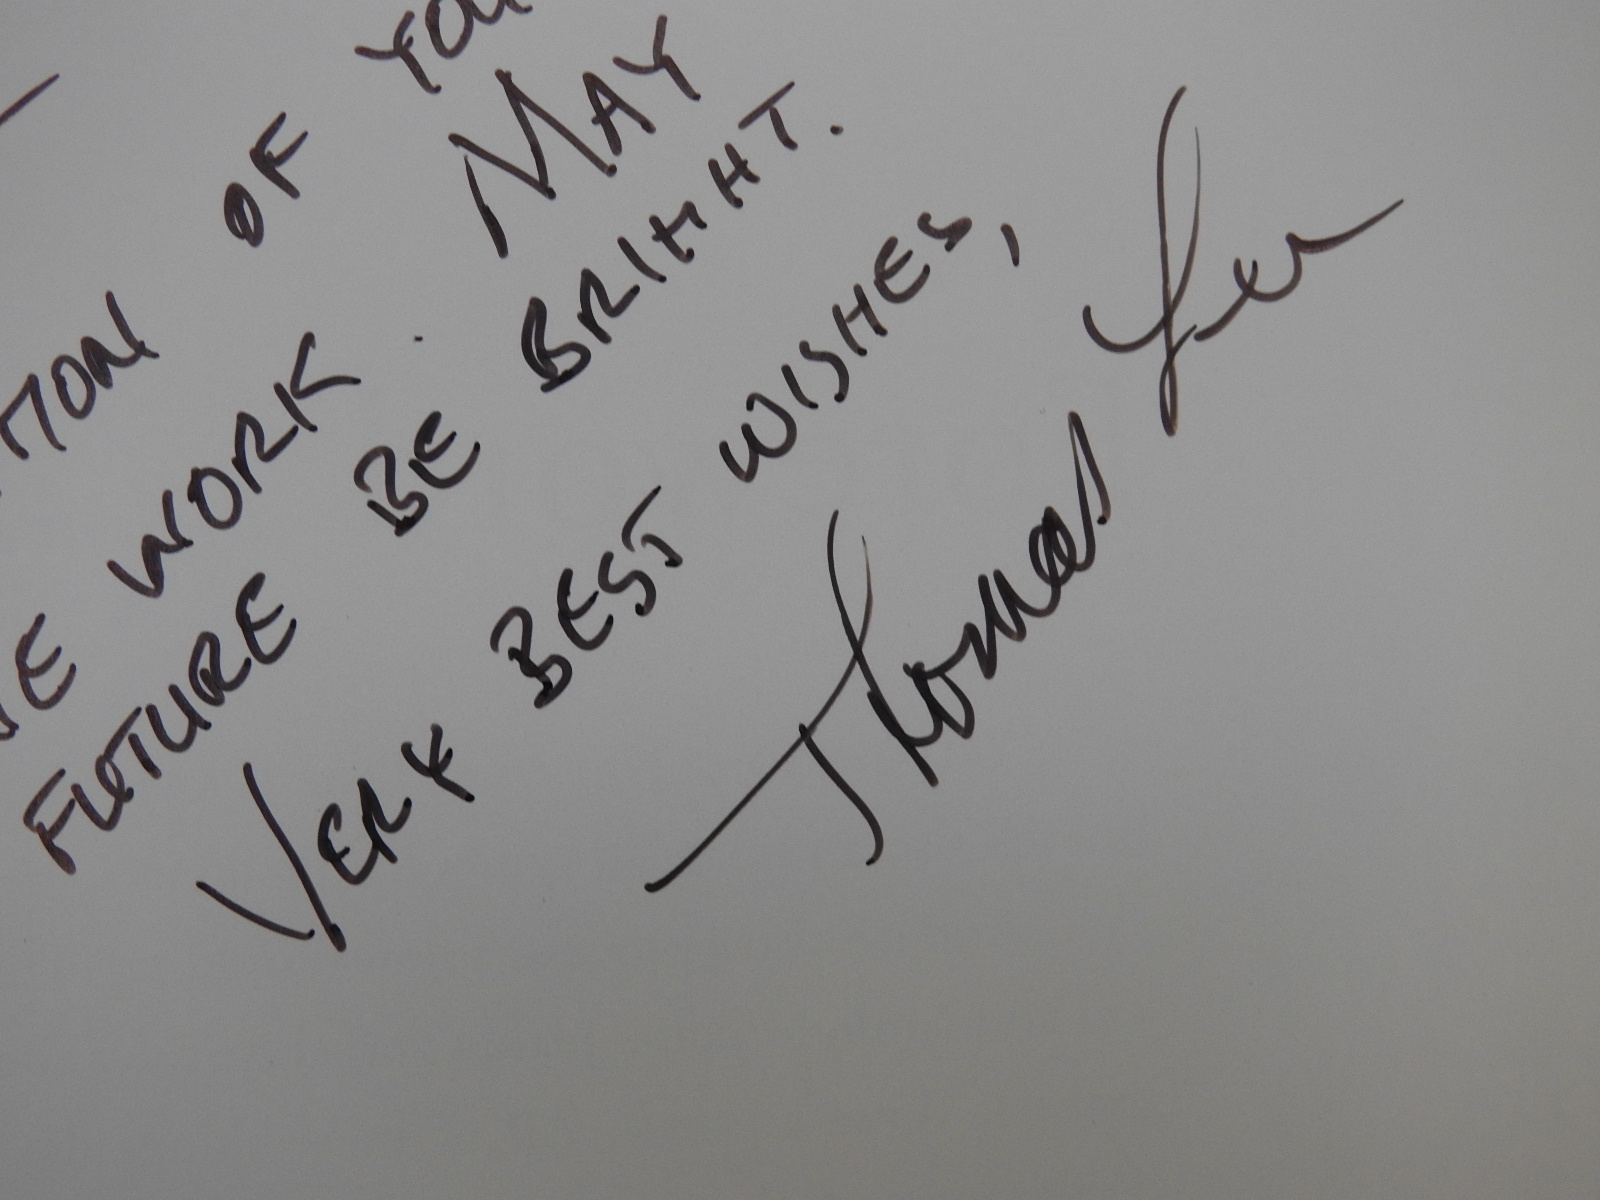 TION OF YOU
E WORK. MAY
FUTURE BE BRIGHT.
VERY BEST WISHES,
Thomas